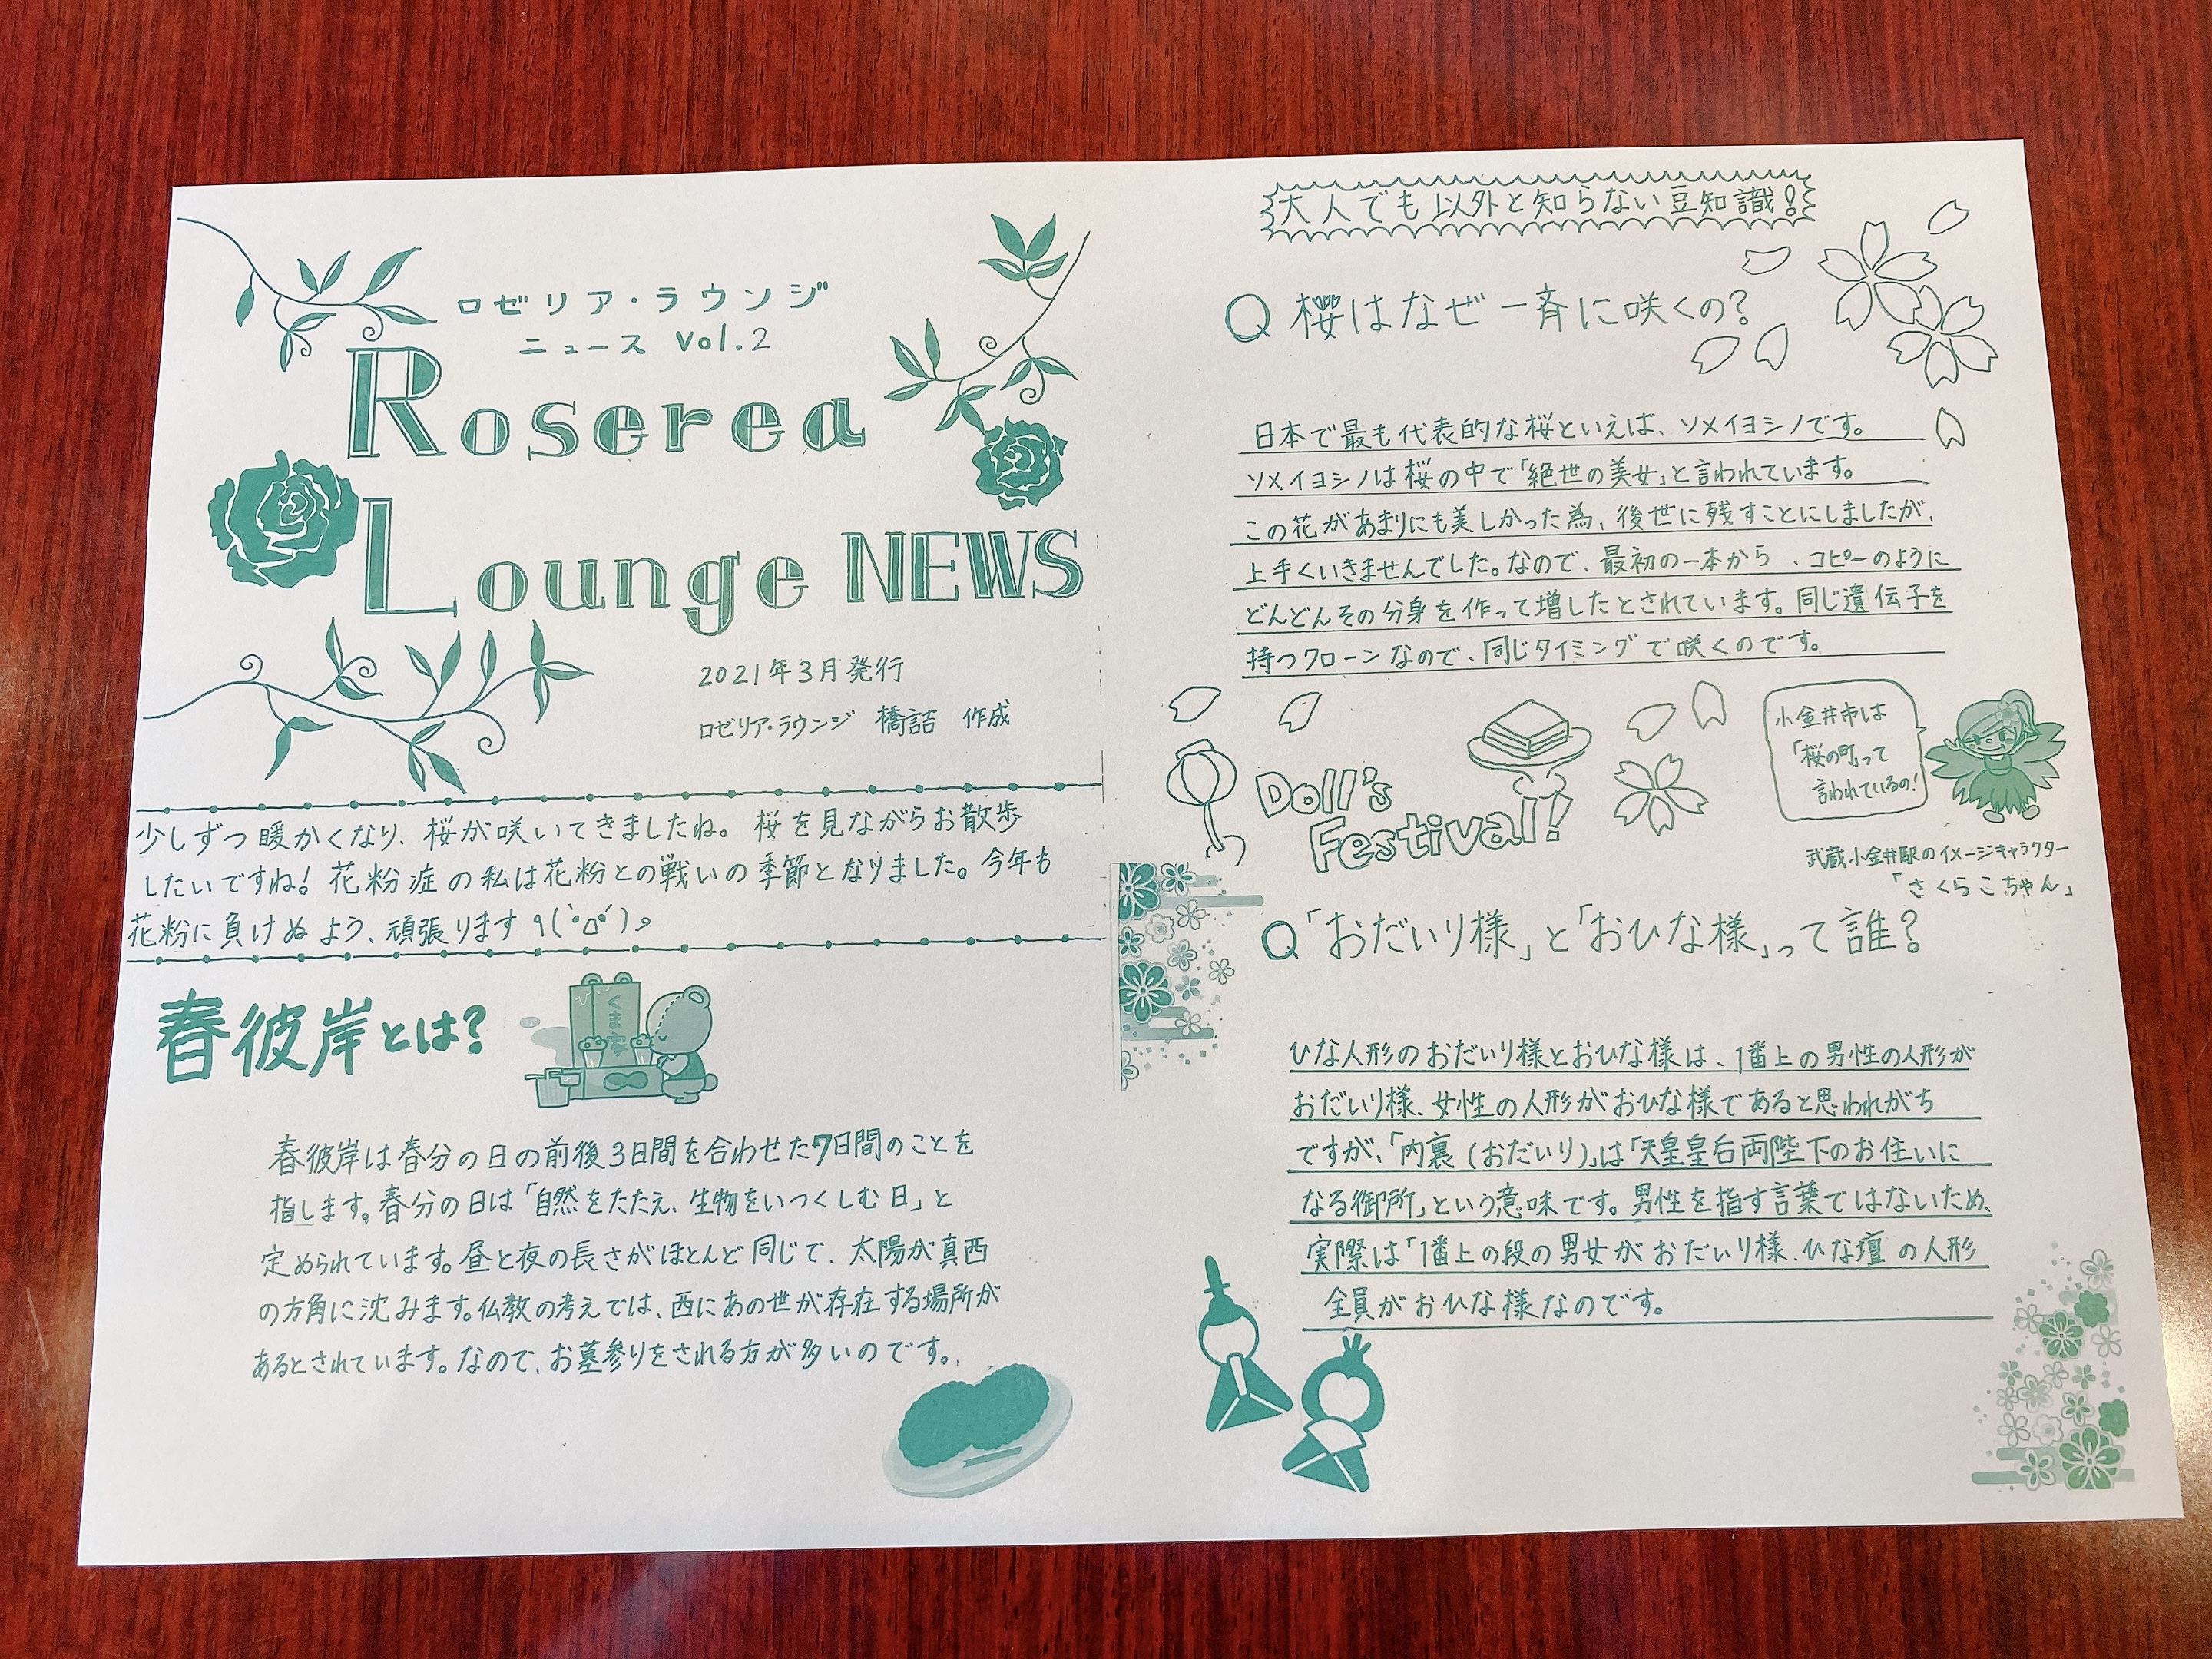 ロゼリア・ラウンジ
ニュース Vol.2
Roserea
Lounge NEWS
2021年3月発行
ロゼリア・ラウンジ 橋詰 作成
少しずつ暖かくなり、桜が咲いてきましたね。桜を見ながらお散歩
したいですね！花粉症の私は花粉との戦いの季節となりました。今年も
花粉に負けぬよう、頑張ります
春彼岸とは？
春彼岸は春分の日の前後3日間を合わせた7日間のことを
指します。春分の日は「自然をたたえ、生物をいつくしむ日」と
定められています。昼と夜の長さがほとんど同じで、太陽が真西
の方角に沈みます。仏教の考えでは、西にあの世が存在する場所が
あるとされています。なので、お墓参りをされる方が多いのです。
大人でも以外と知らない豆知識！
Q 桜はなぜ一斉に咲くの？
日本で最も代表的な桜といえば、ソメイヨシノです。
ソメイヨシノは桜の中で「絶世の美女」と言われています。
この花があまりにも美しかった為、後世に残すことにしましたが、
上手くいきませんでした。なので、最初の一本から、コピーのように
どんどんその分身を作って増したとされています。同じ遺伝子を
持つクローンなので、同じタイミングで咲くのです。
Doll's
Festival!
小金井市は
「桜の町」って
言われているの！
武蔵小金井駅のイメージキャラクター
「さくらこちゃん」
Q「おだいり様」と「おひな様」って誰？
ひな人形のおだいり様とおひな様は、1番上の男性の人形が
おだいり様、女性の人形がおひな様であると思われがち
ですが、「内裏（おだいり）」は「天皇皇后両陛下のお住いに
なる御所」という意味です。男性を指す言葉ではないため、
実際は「1番上の段の男女がおだいり様、ひな壇の人形
全員がおひな様なのです。